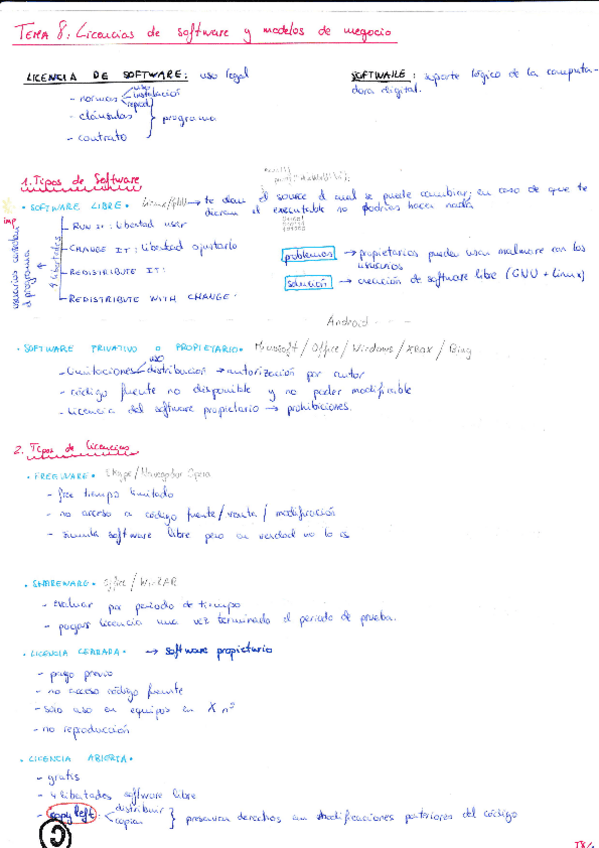 TEMA 8: Licencias de software y modelos de negocio
LICENCIA DE SOFTWARE: uso legal
SOFTWARE: soporte lógico de la computadora digital.
- normas uso instalación
- cláusulas } programa
- contrato
1. Tipos de Software
• SOFTWARE LIBRE • Linux/GNU → te dan el source el cual se puede cambiar; en caso de que te
dieran el executable no podrías hacer nada
imp
usuarios controlan el programa
4 libertades
RUN IT: libertad usar
CHANGE IT: libertad ajustarlo
REDISTRIBUTE IT:
REDISTRIBUTE WITH CHANGE:
problemas → propietarios pueden usar malware con los
usuarios
solución → creación de software libre (GNU + Linux)
Android
• SOFTWARE PRIVATIVO O PROPIETARIO • Microsoft / Office / Windows / Xbox / Bing
- limitaciones uso distribución → autorización por autor
- código fuente no disponible y no poder modificable
- licencia del software propietario → prohibiciones.
2. Tipos de licencias
• FREEWARE • Skype / Navegador Opera
- free tiempo limitado
- no acceso a código fuente / venta / modificación
- simula software libre pero en verdad no lo es
• SHAREWARE • Office / WinRAR
- evaluar por periodo de tiempo
- pagar licencia una vez terminado el periodo de prueba.
• LICENCIA CERRADA • → software propietario
- pago previo
- no acceso código fuente
- solo uso en equipos en X nº
- no reproducción
• LICENCIA ABIERTA •
- gratis
- 4 libertades software libre
- copyleft: distribuir copiar } preservan derechos en modificaciones posteriores del código